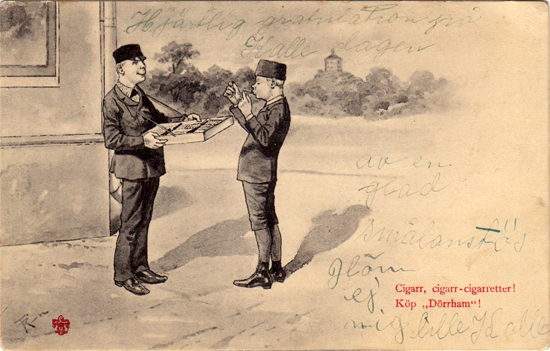 Hjärtlig gratulation på
Kalle dagen
av en
glad
Glöm
ej
mig lille Kalle
Cigarr, cigarr-cigarretter!
Köp „Dörrham“!